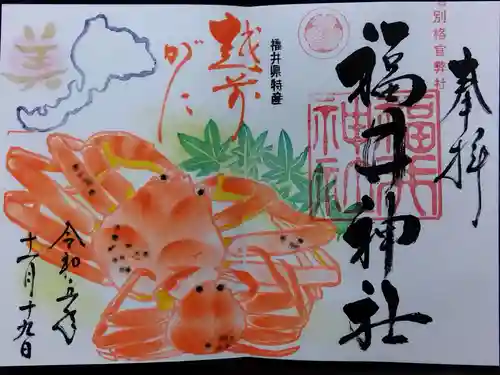 別格官幣社
奉拝
福井神社
福井神社
福井県特産
越前
がに
美
令和五年
十一月十九日